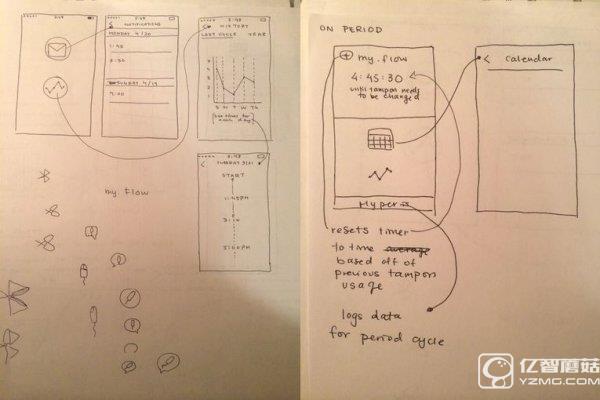 2:48
NOTIFICATIONS
MONDAY 4/20
1:45
2:30
SUNDAY 4/19
9:00
2:48
HISTORY
LAST CYCLE YEAR
S M T W Th
START
1:45PM
my.flow
ON PERIOD
my.flow
4:45:30
until tampon needs
to be changed
< calendar
resets timer
to time average
based off of
previous tampon
usage
logs data
for period cycle
亿智蘑菇
YZMG.COM